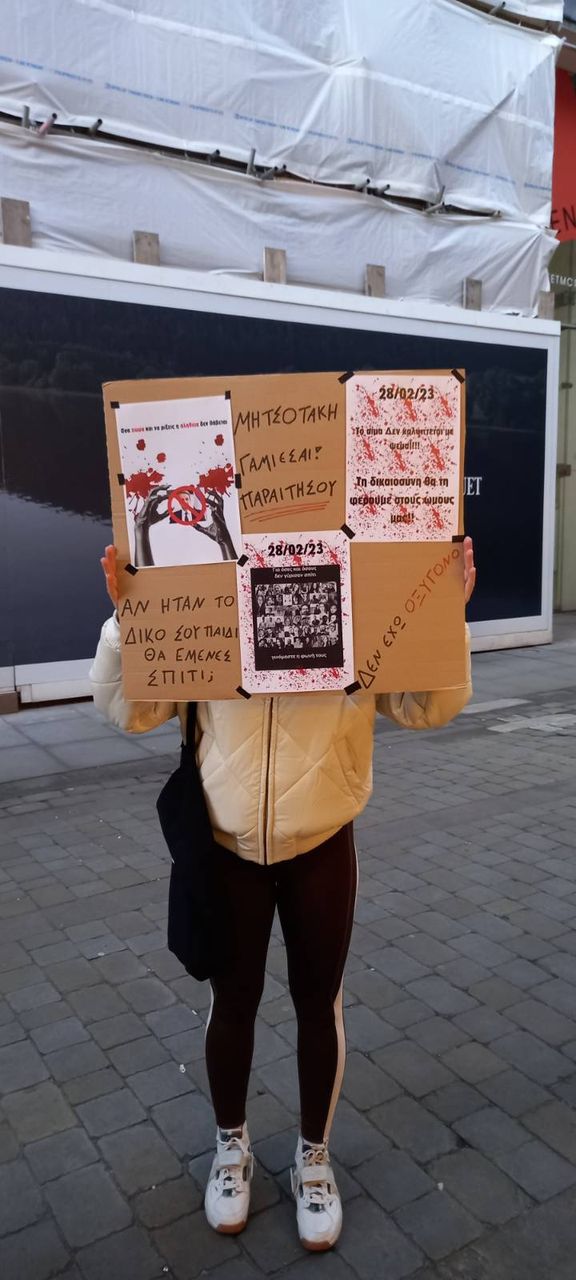 Όσο χώμα και να ρίξεις η αλήθεια δεν θάβεται
ΜΗΤΣΟΤΑΚΗ
ΓΑΜΙΕΣΑΙ!
ΠΑΡΑΙΤΗΣΟΥ
28/02/23
Το αίμα Δεν καλύπτεται με
ψέμα!!!!
Τη δικαιοσύνη θα τη
φέρουμε στους ώμους
μας!!
ΑΝ ΗΤΑΝ ΤΟ
ΔΙΚΟ ΣΟΥ ΠΑΙΔΙ
ΘΑ ΕΜΕΝΕΣ
ΣΠΙΤΙ;
28/02/23
Για όσες και όσους
δεν γύρισαν σπίτι
γινόμαστε η φωνή τους
ΔΕΝ ΕΧΩ ΟΞΥΓΟΝΟ
EN